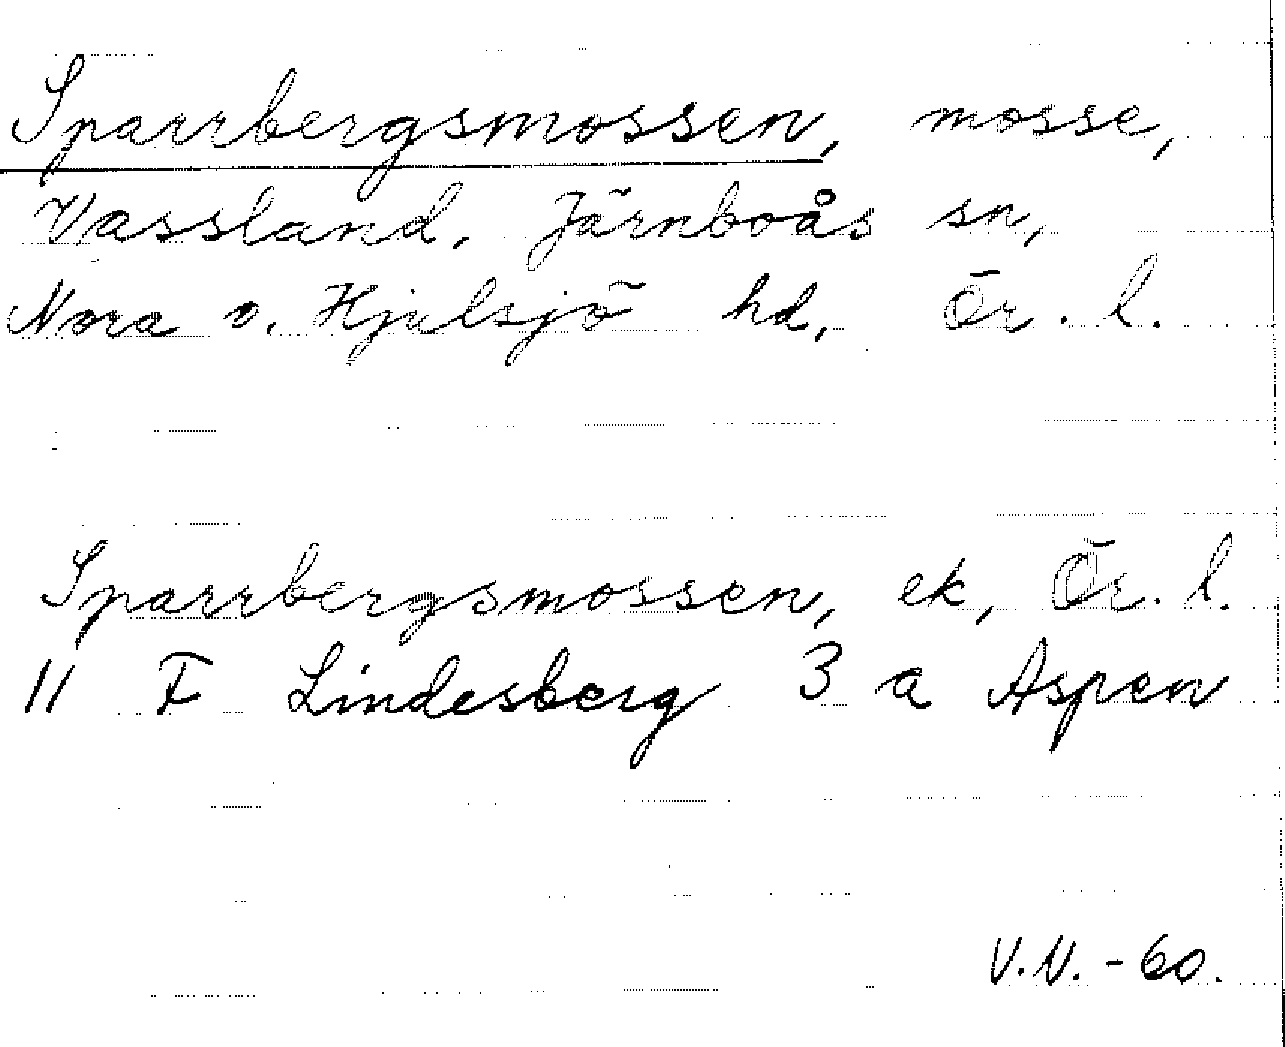 Sparrbergsmossen, mosse,
Vassland, Järnboås sn,
Nora o. Hjulsjö hd, Ör. l.
Sparrbergsmossen, ek, Ör. l.
11 F Lindesberg 3 a Aspen
V.N. -60.